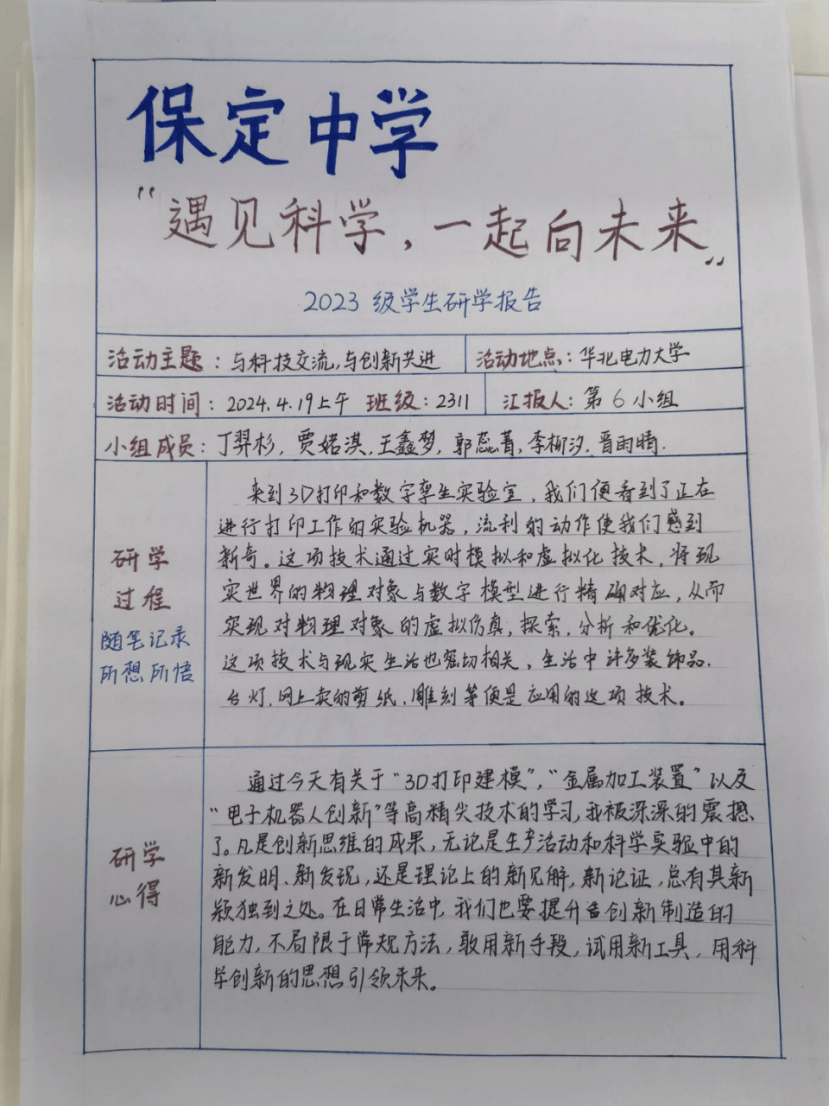 保定中学
“遇见科学，一起向未来”
2023级学生研学报告
活动主题：与科技交流，与创新共进 活动地点：华北电力大学
活动时间：2024.4.19上午 班级：2311 汇报人：第6小组
小组成员：丁羿杉，贾婼淇，王鑫梦，郭蕊菁，李柳汐，晋雨晴.
研学
过程
随笔记录
所想所悟
来到3D打印和数字孪生实验室，我们便看到了正在
进行打印工作的实验机器，流利的动作使我们感到
新奇。这项技术通过实时模拟和虚拟化技术，将现
实世界的物理对象与数字模型进行精确对应，从而
实现对物理对象的虚拟仿真，探索，分析和优化。
这项技术与现实生活也密切相关，生活中许多装饰品.
台灯，网上卖的剪纸，雕刻等便是应用的这项技术。
研学
心得
通过今天有关于“3D打印建模”，“金属加工装置”以及
“电子机器人创新”等高精尖技术的学习，我被深深的震撼
了。凡是创新思维的成果，无论是生产活动和科学实验中的
新发明、新发现，还是理论上的新见解，新论证，总有其新
颖独到之处。在日常生活中，我们也要提升创新制造的
能力，不局限于常规方法，敢用新手段，试用新工具，用科
学创新的思想引领未来。